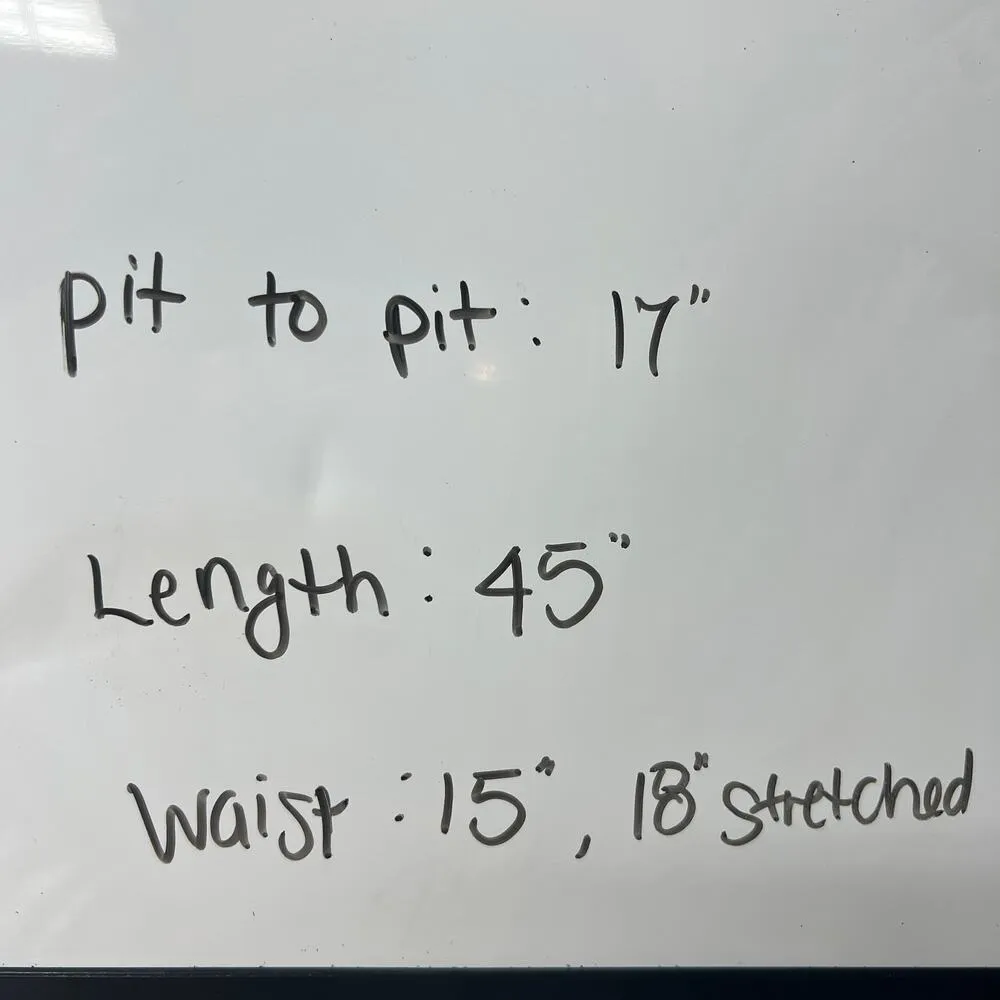 pit to pit: 17"
Length: 45"
Waist: 15", 18" stretched